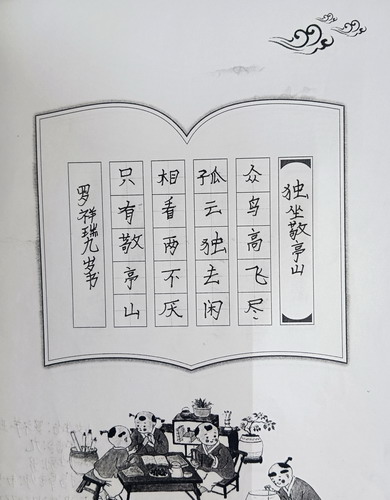 独坐敬亭山
众鸟高飞尽
孤云独去闲
相看两不厌
只有敬亭山
罗祥瑞九岁书